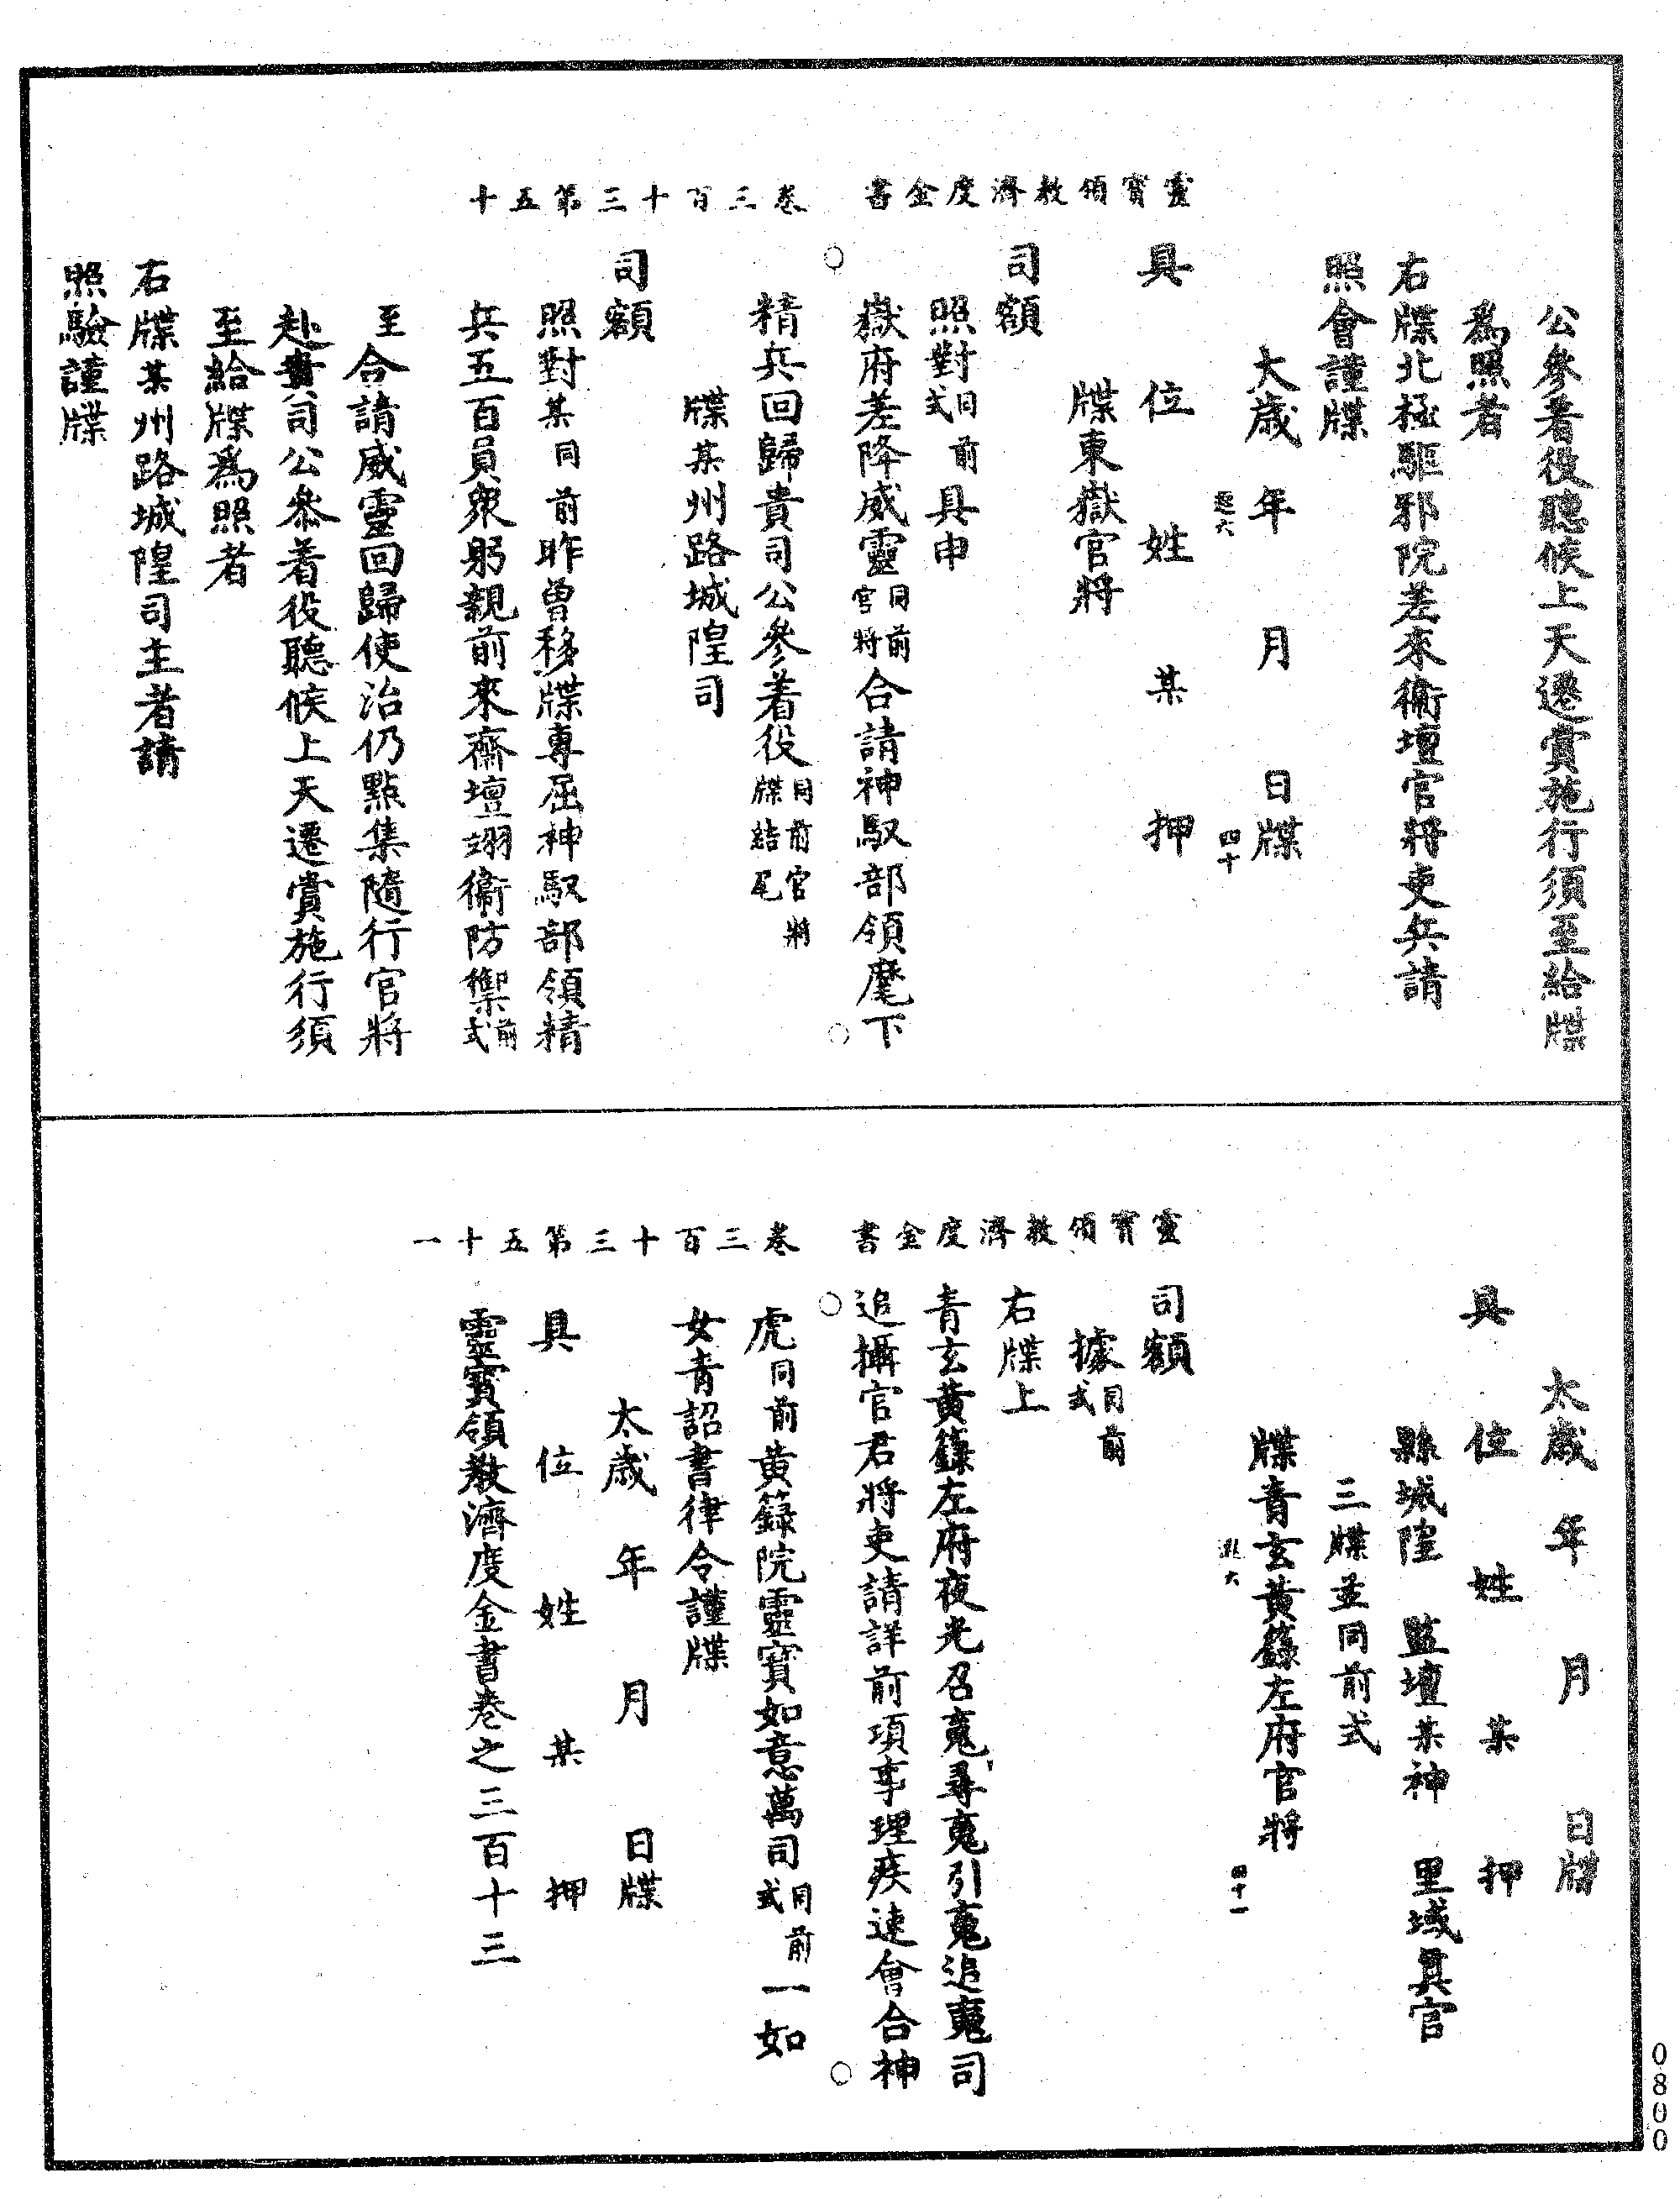 靈寶領教濟度金書　卷三百十三第五十
公參著役聽候上天遷賞施行須至給牒
爲照者
右牒北極驅邪院差來衛壇官將吏兵請
照會謹牒
大歲　年　月　日牒
四十
具　位　姓　某　押
牒東嶽官將
司額
照對同前式具申
嶽府差降威靈同前官將合請神馭部領麾下
精兵回歸貴司公參着役同前官將牒結尾
牒某州路城隍司
司額
照對某同前昨曾移牒專屈神馭部領精
兵五百員衆躬親前來齋壇翊衛防禦前式
至合請威靈回歸使治仍點集隨行官將
赴貴司公參着役聽候上天遷賞施行須
至給牒爲照者
右牒某州路城隍司主者請
照驗謹牒
靈寶領教濟度金書　卷三百十三第五十一
太歲　年　月　日牒
具　位　姓　某　押
縣城隍　監壇某神　里域眞官
三牒並同前式
牒青玄黃籙左府官將
四十一
司額
據同前式
右牒上
青玄黃籙左府夜光召魂尋魂引魂追魂司
追攝官君將吏請詳前項事理疾速會合神
虎同前黃籙院靈寶如意萬司同前式一如
女青詔書律令謹牒
太歲　年　月　日牒
具　位　姓　某　押
靈寶領教濟度金書卷之三百十三
0800